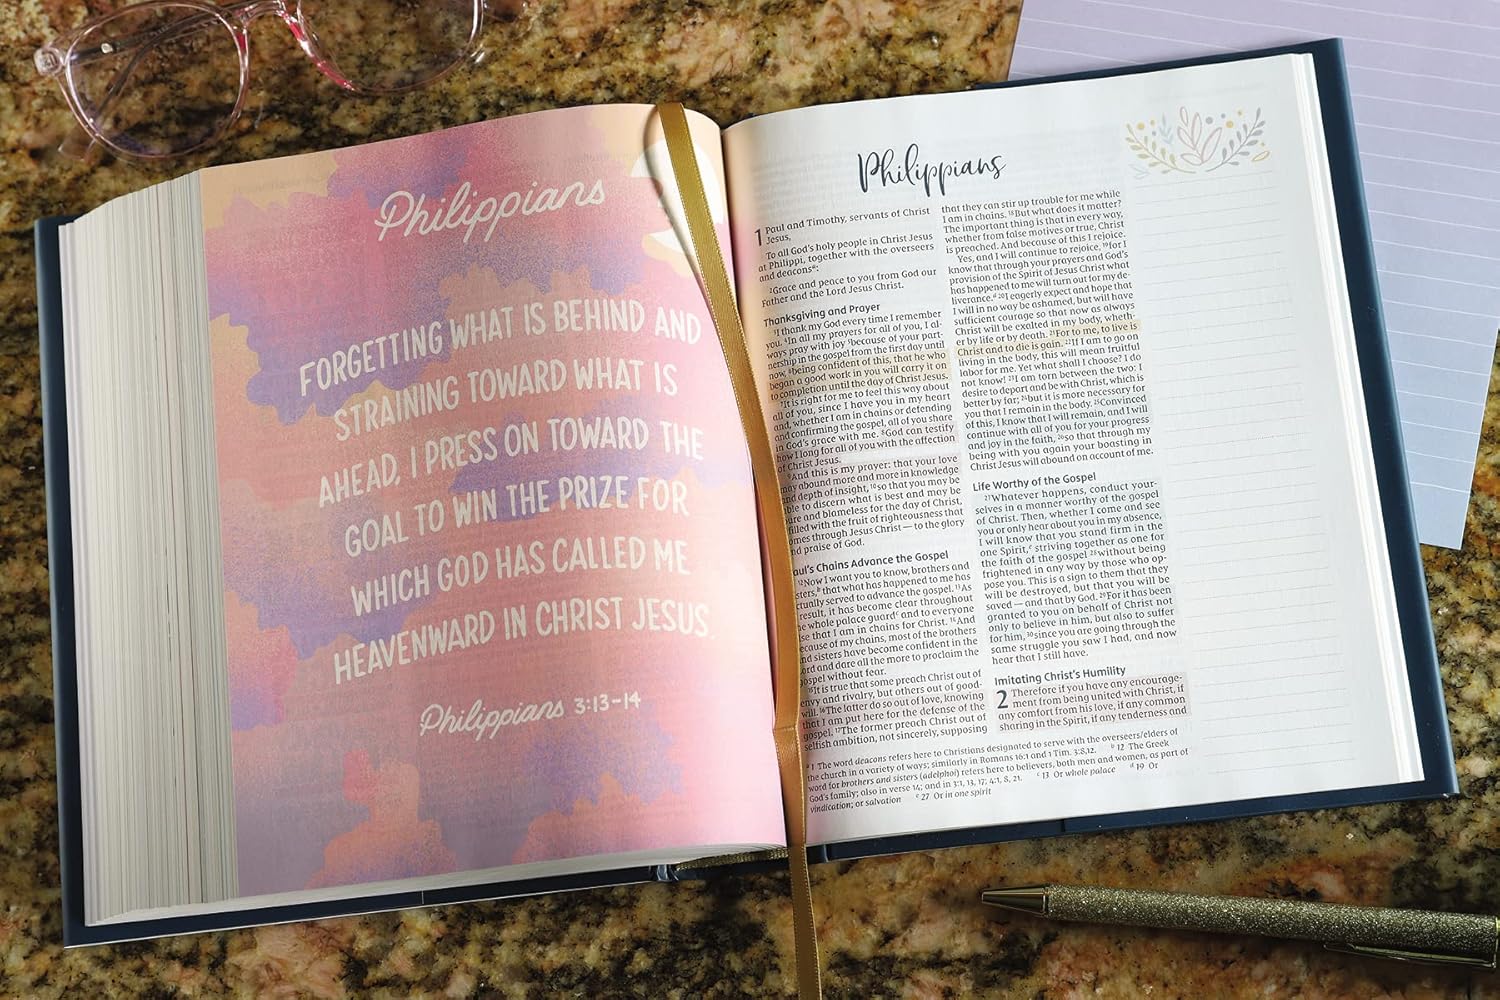 Philippians
FORGETTING WHAT IS BEHIND AND
STRAINING TOWARD WHAT IS
AHEAD, I PRESS ON TOWARD THE
GOAL TO WIN THE PRIZE FOR
WHICH GOD HAS CALLED ME
HEAVENWARD IN CHRIST JESUS.
Philippians 3:13-14
Philippians
1 Paul and Timothy, servants of Christ
Jesus,
To all God's holy people in Christ Jesus
at Philippi, together with the overseers
and deacons a:
2 Grace and peace to you from God our
Father and the Lord Jesus Christ.
Thanksgiving and Prayer
3 I thank my God every time I remember
you. 4 In all my prayers for all of you, I al-
ways pray with joy 5 because of your part-
nership in the gospel from the first day until
now, 6 being confident of this, that he who
began a good work in you will carry it on
to completion until the day of Christ Jesus.
7 It is right for me to feel this way about
all of you, since I have you in my heart
and, whether I am in chains or defending
and confirming the gospel, all of you share
in God's grace with me. 8 God can testify
how I long for all of you with the affection
of Christ Jesus.
9 And this is my prayer: that your love
may abound more and more in knowledge
and depth of insight, 10 so that you may be
able to discern what is best and may be
pure and blameless for the day of Christ,
filled with the fruit of righteousness that
comes through Jesus Christ — to the glory
and praise of God.
Paul's Chains Advance the Gospel
12 Now I want you to know, brothers and
sisters, b that what has happened to me has
actually served to advance the gospel. 13 As
result, it has become clear throughout
the whole palace guard c and to everyone
else that I am in chains for Christ. 14 And
because of my chains, most of the brothers
and sisters have become confident in the
Lord and dare all the more to proclaim the
gospel without fear.
15 It is true that some preach Christ out of
envy and rivalry, but others out of good-
will. 16 The latter do so out of love, knowing
that I am put here for the defense of the
gospel. 17 The former preach Christ out of
selfish ambition, not sincerely, supposing
that they can stir up trouble for me while
I am in chains. 18 But what does it matter?
The important thing is that in every way,
whether from false motives or true, Christ
is preached. And because of this I rejoice.
Yes, and I will continue to rejoice, 19 for I
know that through your prayers and God's
provision of the Spirit of Jesus Christ what
has happened to me will turn out for my de-
liverance. d 20 I eagerly expect and hope that
I will in no way be ashamed, but will have
sufficient courage so that now as always
Christ will be exalted in my body, wheth-
er by life or by death. 21 For to me, to live is
Christ and to die is gain. 22 If I am to go on
living in the body, this will mean fruitful
labor for me. Yet what shall I choose? I do
not know! 23 I am torn between the two: I
desire to depart and be with Christ, which is
better by far; 24 but it is more necessary for
you that I remain in the body. 25 Convinced
of this, I know that I will remain, and I will
continue with all of you for your progress
and joy in the faith, 26 so that through my
being with you again your boasting in
Christ Jesus will abound on account of me.
Life Worthy of the Gospel
27 Whatever happens, conduct your-
selves in a manner worthy of the gospel
of Christ. Then, whether I come and see
you or only hear about you in my absence,
I will know that you stand firm in the
one Spirit, e striving together as one for
the faith of the gospel 28 without being
frightened in any way by those who op-
pose you. This is a sign to them that they
will be destroyed, but that you will be
saved — and that by God. 29 For it has been
granted to you on behalf of Christ not
only to believe in him, but also to suffer
for him, 30 since you are going through the
same struggle you saw I had, and now
hear that I still have.
Imitating Christ's Humility
2 Therefore if you have any encourage-
ment from being united with Christ, if
any comfort from his love, if any common
sharing in the Spirit, if any tenderness and
a 1 The word deacons refers here to Christians designated to serve with the overseers/elders of
the church in a variety of ways; similarly in Romans 16:1 and 1 Tim. 3:8,12. b 12 The Greek
word for brothers and sisters (adelphoi) refers here to believers, both men and women, as part of
God's family; also in verse 14; and in 3:1, 13, 17; 4:1, 8, 21. c 13 Or whole palace d 19 Or
vindication; or salvation e 27 Or in one spirit